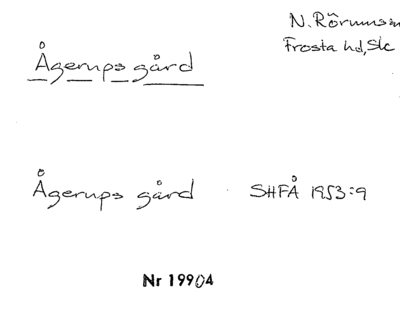 N. Rörums sn
Frosta hd, Sk
Ågerups gård
Ågerups gård SHFÅ 1953:9
Nr 19904